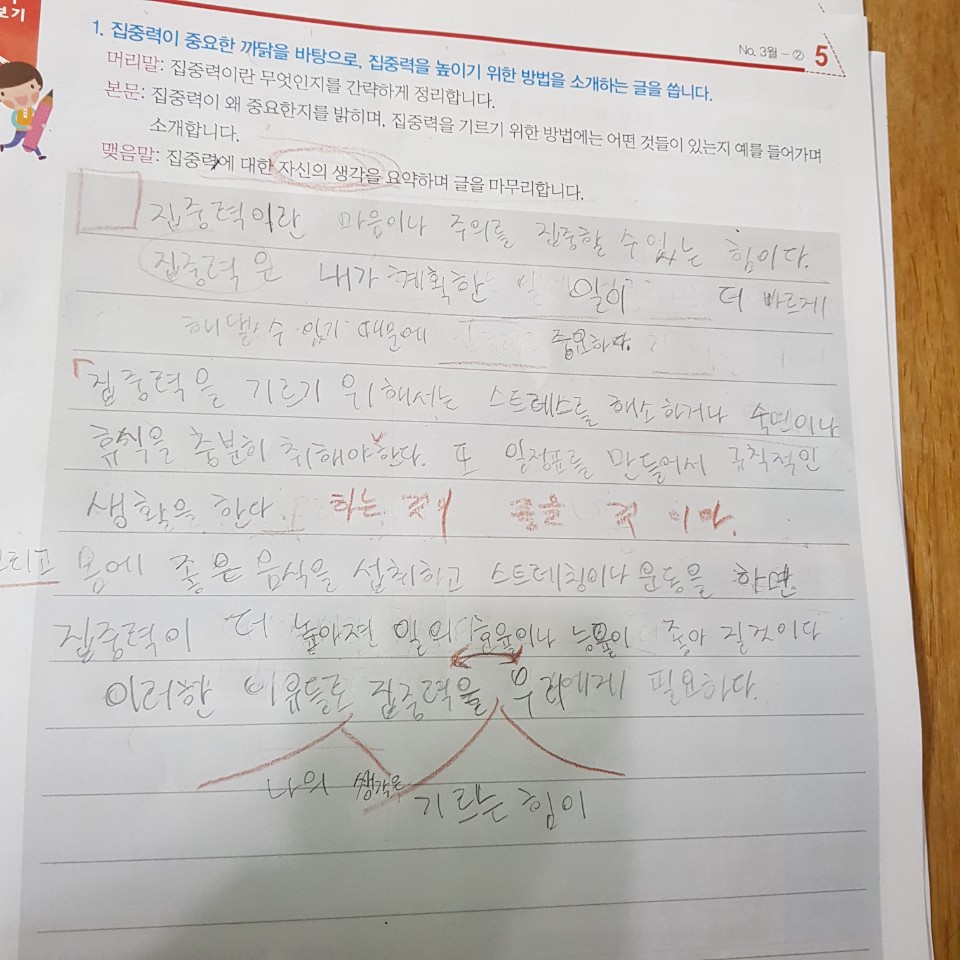 보기
No. 3월 - ② 5
1. 집중력이 중요한 까닭을 바탕으로, 집중력을 높이기 위한 방법을 소개하는 글을 씁니다.
머리말: 집중력이란 무엇인지를 간략하게 정리합니다.
본문: 집중력이 왜 중요한지를 밝히며, 집중력을 기르기 위한 방법에는 어떤 것들이 있는지 예를 들어가며
소개합니다.
맺음말: 집중력에 대한 자신의 생각을 요약하며 글을 마무리합니다.
집중력이란 마음이나 주의를 집중할 수 있는 힘이다.
집중력은 내가 계획한 일이 더 빠르게
해낼 수 있기 때문에 중요하다.
집중력을 기르기 위해서는 스트레스를 해소하거나 숙면이나
휴식을 충분히 취해야 한다. 또 일정표를 만들어서 규칙적인
생활을 한다. 하는 것이 좋은 것 이다.
그리고 몸에 좋은 음식을 섭취하고 스트레칭이나 운동을 하면
집중력이 더 높아져 일의 효율이나 능률이 좋아 질것이다
이러한 이유들로 집중력을 우리에게 필요하다.
나의 생각은
기르는 힘이